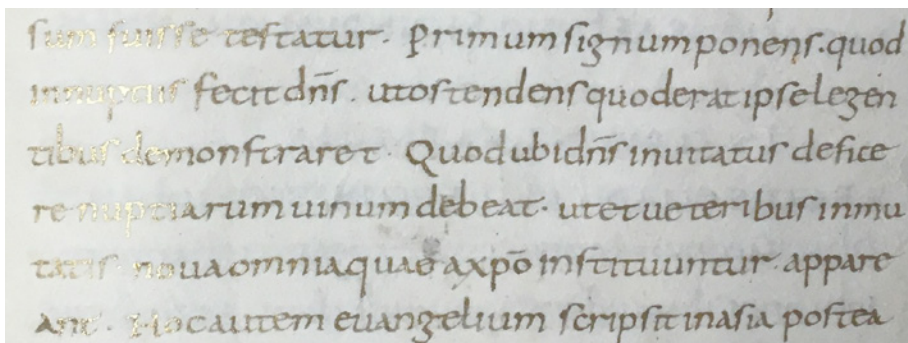 sum fuisse testatur. Primum signum ponens. quod
innuptiis fecit dn̄s. ut ostendens quod erat ipse legen
tibus demonstraret. Quod ubi dn̄s inuitatus defice
re nuptiarum uinum debeat. ut et ueteribus inmu
tatis noua omnia quae a xp̄o instituuntur. appare
ant. Hoc autem euangelium scripsit in asia postea